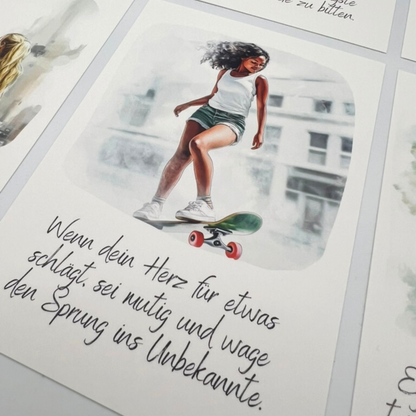 zu bitten.
Wenn dein Herz für etwas
schlägt, sei mutig und wage
den Sprung ins Unbekannte.